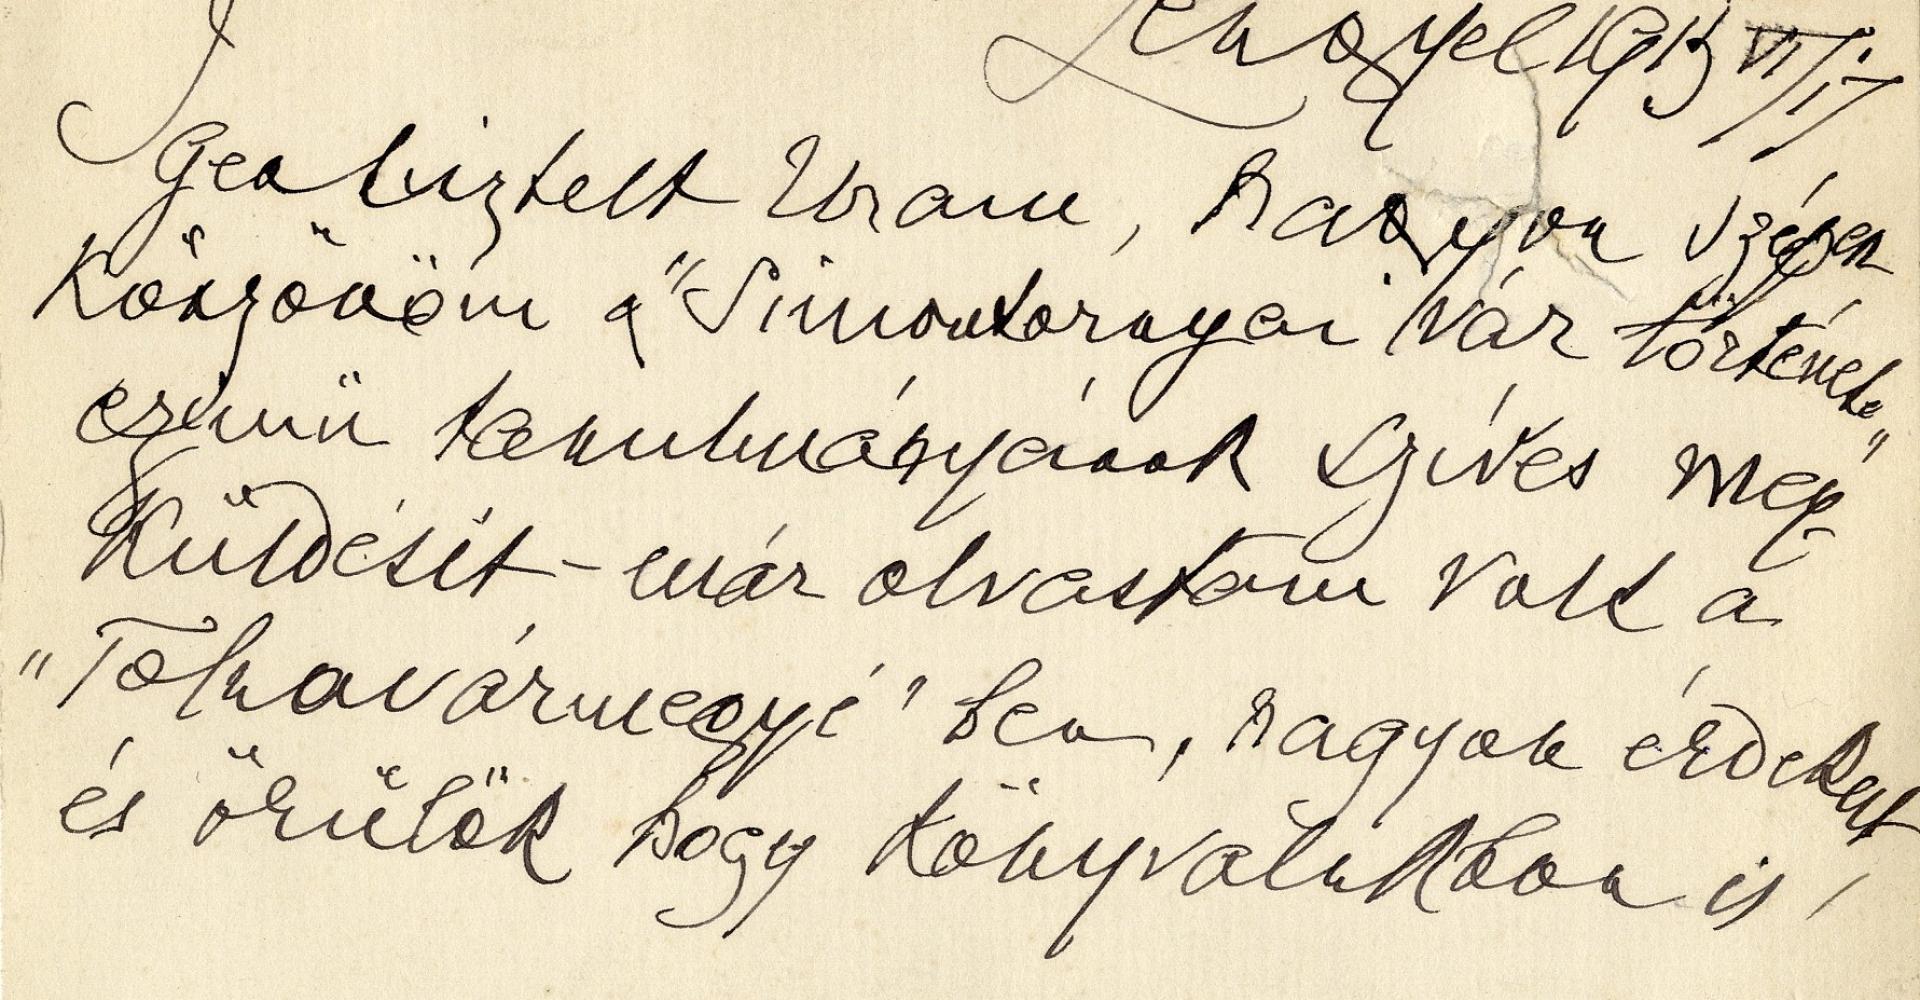 Lengyel 1913 VI/17
Igen tisztelt Uram, nagyon szépen
köszönöm a "Simontornyai vár története"
czimü tanulmányának szíves meg-
küldését – már olvastam volt a
"Tolnavármegyé" ben, nagyon érdekelt
és örülök hogy könyvalakban is